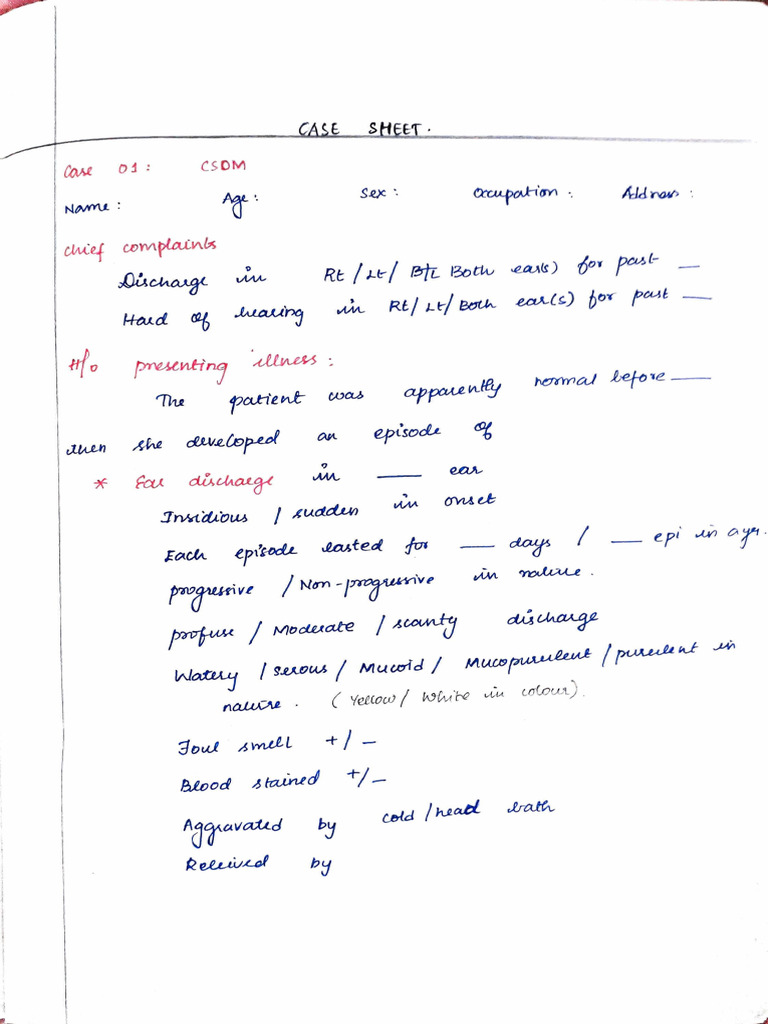 CASE SHEET.
Case 01: CSOM
Name: Age: Sex: Occupation: Address:
Chief complaints
Discharge in Rt/Lt/ Both ear(s) for past __
Hard of hearing in Rt/Lt/Both ear(s) for past __
H/o presenting illness:
The patient was apparently normal before __
then she developed an episode of
* Ear discharge in __ ear
Insidious / sudden in onset
Each episode lasted for __ days / __ epi in a yr.
progressive / Non-progressive in nature.
profuse / Moderate / scanty discharge
Watery / serous / Mucoid / Mucopurulent / purulent in
nature. (Yellow/ White in colour).
Foul smell +/-
Blood stained +/-
Aggravated by cold /head bath
Releived by